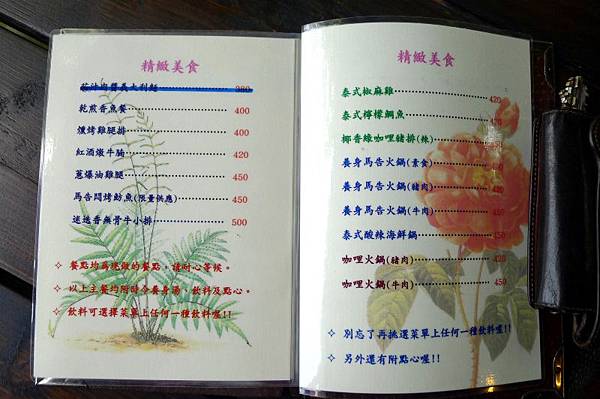 精緻美食
茄汁肉醬義大利麵 380
乾煎香魚餐 400
燻烤雞腿排 400
紅酒燉牛腩 420
蔥爆油雞腿 450
馬告悶烤魴魚(限量供應) 450
迷迭香無骨牛小排 500
✧ 餐點均為現做的餐點,請耐心等候。
✧ 以上主餐均附時令養身湯,飲料及點心。
✧ 飲料可選擇菜單上任何一種飲料喔!!
精緻美食
泰式椒麻雞 420
泰式檸檬鯛魚 420
椰香綠咖哩豬排(辣)
養身馬告火鍋(素食)
養身馬告火鍋(豬肉)
養身馬告火鍋(牛肉) 450
泰式酸辣海鮮鍋 450
咖哩火鍋(豬肉) 420
咖哩火鍋(牛肉) 450
✧ 別忘了再挑選菜單上任何一種飲料喔!!
✧ 另外還有附點心喔!!